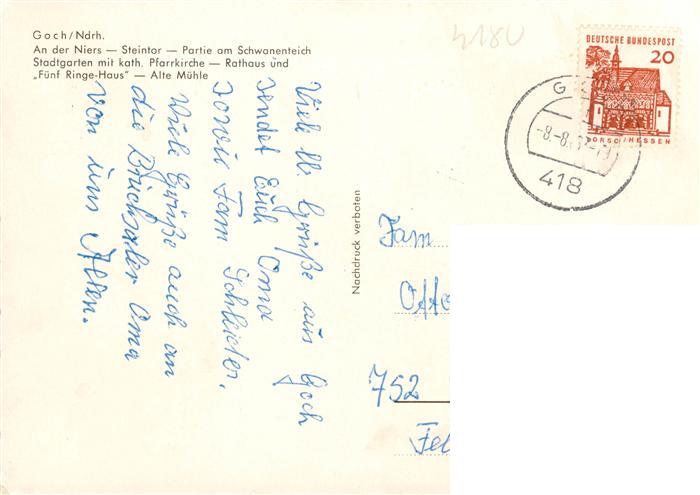 Goch/Ndrh.
An der Niers — Steintor — Partie am Schwanenteich
Stadtgarten mit kath. Pfarrkirche — Rathaus und
„Fünf Ringe-Haus” — Alte Mühle
4180
DEUTSCHE BUNDESPOST
20
LORSCH/HESSEN
-8.-8.
418
Viele lb Grüße aus Goch
sendet Euch Oma
sowie Fam Schleider.
Viele Grüße auch an
die Bruchsaler Oma
von uns Allen.
Nachdruck verboten
Fam
752